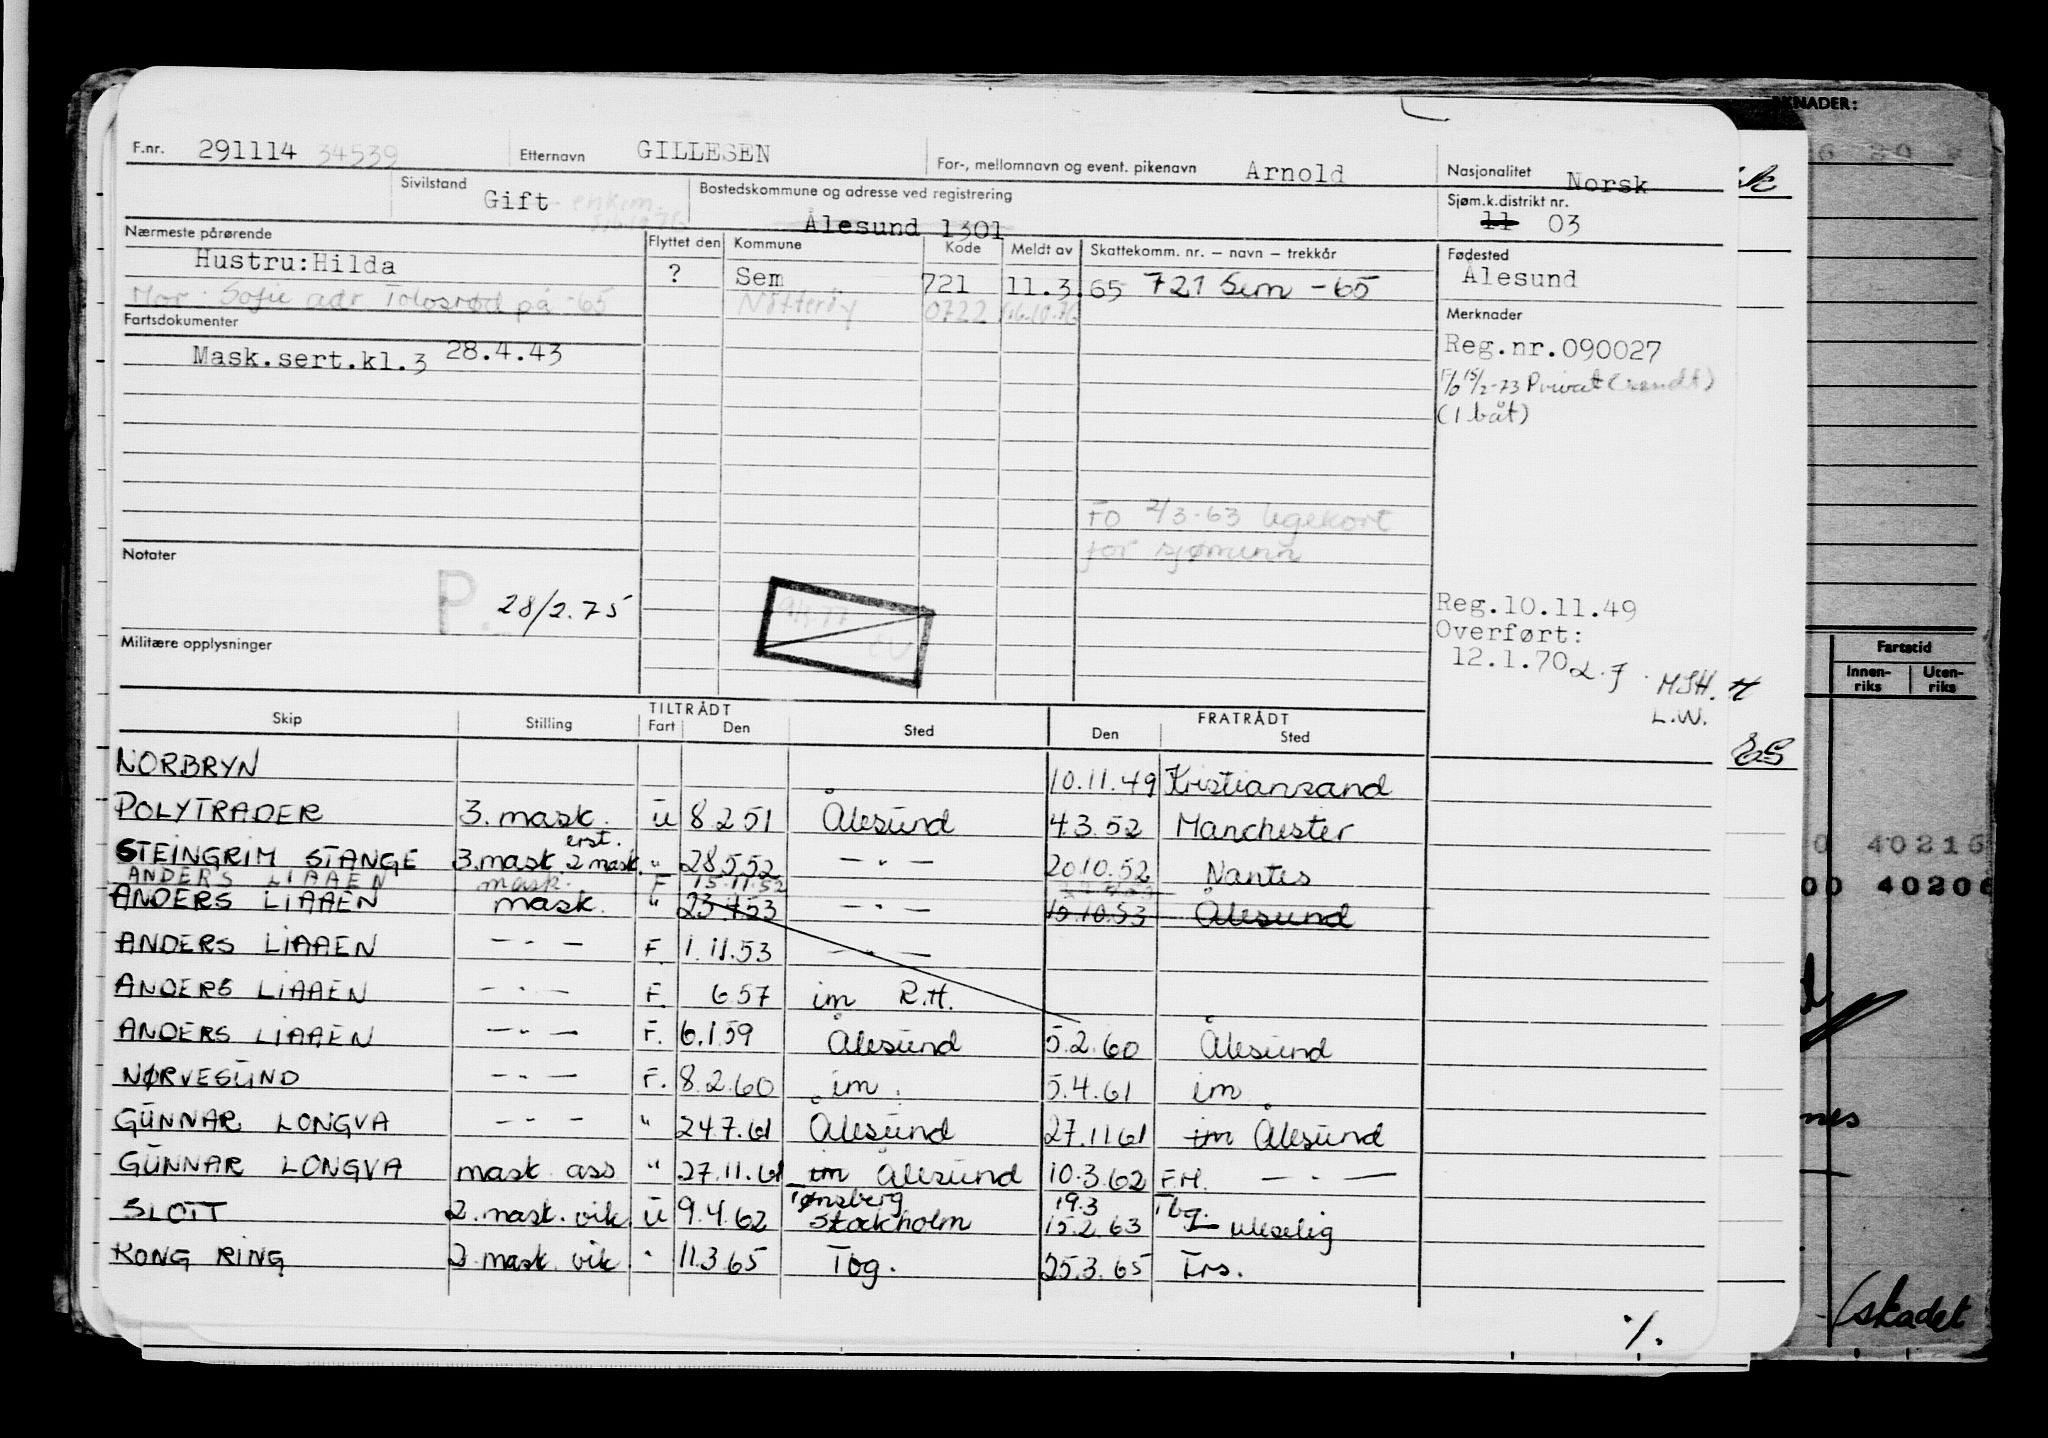 KNADER:
F.nr. 291114 34539 Etternavn GILLESEN For-, mellomnavn og event. pikenavn Arnold Nasjonalitet Norsk
Sivilstand Gift enkem. Bostedskommune og adresse ved registrering Ålesund 1301 Sjøm.k.distrikt nr. 11 03
Nærmeste pårørende Flyttet den Kommune Kode Meldt av Skattekomm. nr. – navn – trekkår Fødested
Hustru:Hilda ? Sem 721 11.3.65 721 Sem -65 Ålesund
Mor: Sofie adr Tolosrød på -65 Nøtterøy 0722 16.10.76
Fartsdokumenter Merknader
Mask.sert.kl.3 28.4.43 Reg.nr.090027
F/o 15/2-73 Privat (sendt)
(1 båt)
FO 2/3-63 legekort
for sjømenn
Notater
P. 28/2.75
Reg.10.11.49
Overført:
12.1.70 MSH.
L.W.
Militære opplysninger
Fartstid
Innen-riks Uten-riks
TILTRÅDT FRATRÅDT
Skip Stilling Fart Den Sted Den Sted
NORBRYN 10.11.49 Kristiansand
POLYTRADER 3. mask. u 8.2.51 Ålesund 4.3.52 Manchester
STEINGRIM STANGE 3.mask. erst. 2 mask. " 28.5.52 — " — 20.10.52 Nantes
ANDERS LIAAEN mask. F 15.11.52
ANDERS LIAAEN mask. " 23.7.53 — " — 15.10.53 Ålesund
ANDERS LIAAEN — " — F. 1.11.53 — " —
ANDERS LIAAEN — " — F. 6.57 im R.H.
ANDERS LIAAEN — " — F. 6.1.59 Ålesund 5.2.60 Ålesund
NØRVESUND — " — F. 8.2.60 im. 5.4.61 im
GUNNAR LONGVA — " — " 24.7.61 Ålesund 27.11.61 im Ålesund
GUNNAR LONGVA mask. ass " 27.11.61 im Ålesund 10.3.62 F.H. — " —
SLOTT 2. mask. vik u 9.4.62 Tønsberg Stockholm 19.3 15.2.63 Tbg. uleselig
KONG RING 2. mask. vik " 11.3.65 Tbg. 25.3.65 Trs.
40215
40206
(skadet
./.